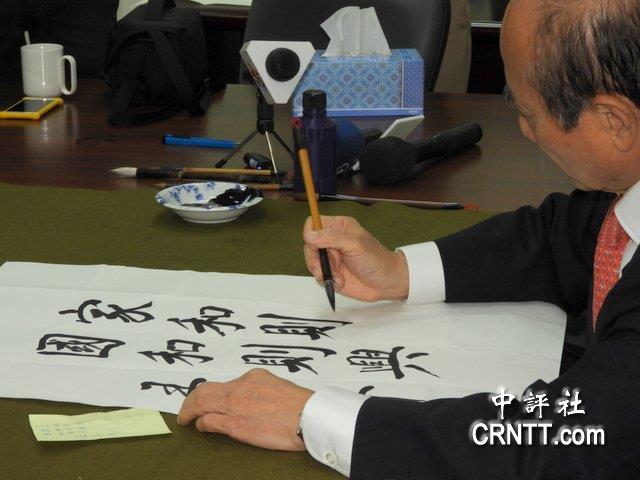 家和則
國和則興
中評社
CRNTT.com